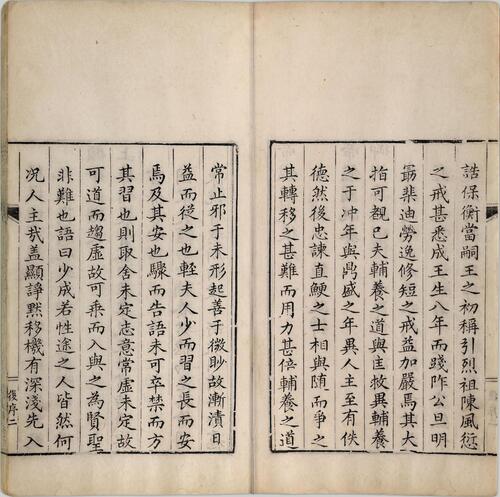 誥保衡當嗣王之初稱引烈祖陳風愆
之戒甚悉成王生八年而踐阼公旦明
勗棐迪勞逸修短之戒益加嚴焉其大
指可覩已夫輔養之道與匡救異輔養
之于冲年與鼎盛之年異人主至有佚
德然後忠諫直鯁之士相與随而爭之
其轉移之甚難而用力甚倍輔養之道
常止邪于未形起善于微眇故漸漬日
益而從之也輕夫人少而習之長而安
焉及其安也驟而告語未可卒禁而方
其習也則取舍未定志意常虛未定故
可道而趨虛故可乘而入與之為賢聖
非難也語曰少成若性途之人皆然何
况人主哉盖顯諍黙移機有深淺先入
後序二